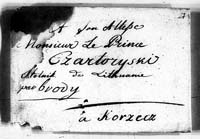 A Son Altesse
Monsieur Le Prince
Czartoryski
Stolnik de Lithuanie
par Brody
à Korzecz